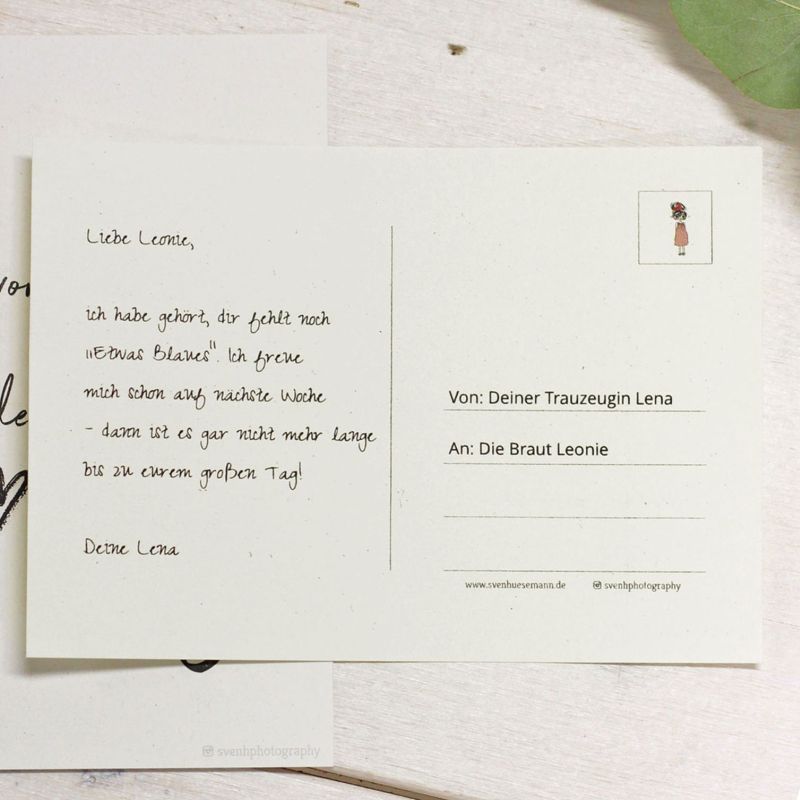 Liebe Leonie,
ich habe gehört, dir fehlt noch
„Etwas Blaues". Ich freue
mich schon auf nächste Woche
- dann ist es gar nicht mehr lange
bis zu eurem großen Tag!
Deine Lena
Von: Deiner Trauzeugin Lena
An: Die Braut Leonie
www.svenhuesemann.de
svenhphotography
svenhphotography